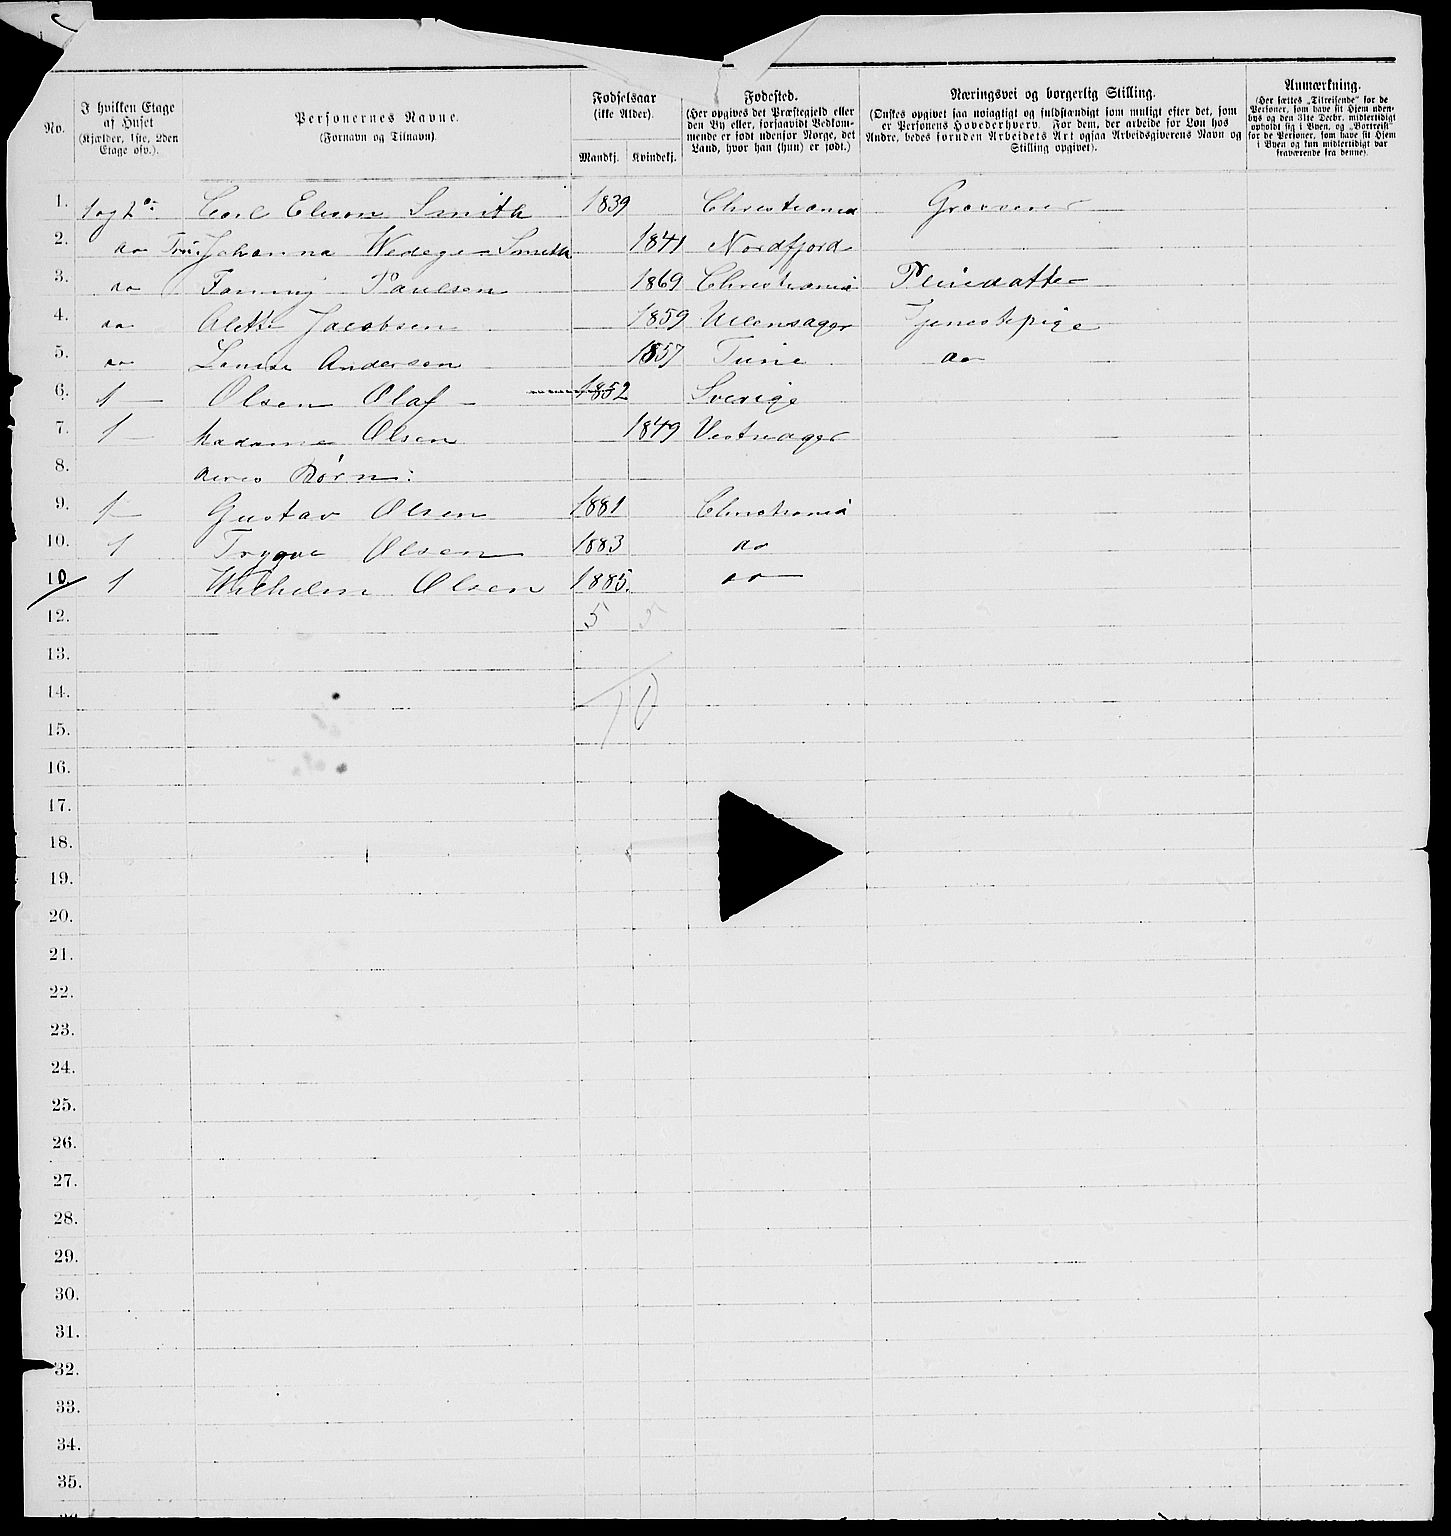 No.
I hvilken Etage af Huset (Kjælder, 1ste, 2den Etage osv.).
Personernes Navne. (Fornavn og Tilnavn).
Fødselsaar (ikke Alder). Mandkj. Kvindekj.
Fødested. (Her opgives det Præstegjeld eller den By eller, forsaavidt Vedkommende er født udenfor Norge, det Land, hvor han (hun) er født.)
Næringsvei og borgerlig Stilling. (Ønskes opgivet saa nøiagtigt og fuldstændigt som muligt efter det, som er Personens Hovederhverv. For dem, der arbeide for Løn hos Andre, bedes foruden Arbeidets Art ogsaa Arbeidsgiverens Navn og Stilling opgivet).
Anmærkning. (Her sættes „Tilreisende" for de Personer, som have sit Hjem udenbys og den 31te Decbr. midlertidigt opholdt sig i Byen, og „Bortreist" for de Personer, som have sit Hjem i Byen og kun midlertidigt var fraværende fra denne).
1. 1 og 2den Carl Elieson Smith 1839 Christiania Grosserer
2. do Fru: Johanna Wedege Smith 1841 Nordfjord
3. do Fanny Paulsen 1869 Christiania Pleiedatter
4. do Olette Jacobsen 1859 Ullensager Tjenestepige
5. do Louise Andersen 1857 Tune do
6. 1 — Olsen Olaf — 1852 Sverige
7. 1 — Madame Olsen 1849 Vestreager
8. deres Børn:
9. 1 — Gustav Olsen 1881 Christiania
10. 1 Trygve Olsen 1883 do
10 1 Wilhelm Olsen 1885. do —
12. 5 5
13.
14. 10
15.
16.
17.
18.
19.
20.
21.
22.
23.
24.
25.
26.
27.
28.
29.
30.
31.
32.
33.
34.
35.